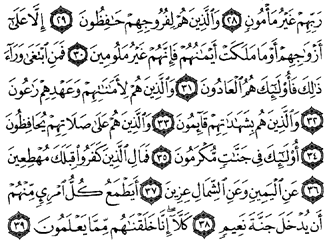 رَبِّهِمْ غَيْرُ مَأْمُونٍ ٢٨ وَالَّذِينَ هُمْ لِفُرُوجِهِمْ حَافِظُونَ ٢٩ إِلَّا عَلَىٰ
أَزْوَاجِهِمْ أَوْ مَا مَلَكَتْ أَيْمَانُهُمْ فَإِنَّهُمْ غَيْرُ مَلُومِينَ ٣٠ فَمَنِ ابْتَغَىٰ وَرَاءَ
ذَٰلِكَ فَأُولَٰئِكَ هُمُ الْعَادُونَ ٣١ وَالَّذِينَ هُمْ لِأَمَانَاتِهِمْ وَعَهْدِهِمْ رَاعُونَ
٣٢ وَالَّذِينَ هُمْ بِشَهَادَاتِهِمْ قَائِمُونَ ٣٣ وَالَّذِينَ هُمْ عَلَىٰ صَلَاتِهِمْ يُحَافِظُونَ
٣٤ أُولَٰئِكَ فِي جَنَّاتٍ مُكْرَمُونَ ٣٥ فَمَالِ الَّذِينَ كَفَرُوا قِبَلَكَ مُهْطِعِينَ
٣٦ عَنِ الْيَمِينِ وَعَنِ الشِّمَالِ عِزِينَ ٣٧ أَيَطْمَعُ كُلُّ امْرِئٍ مِنْهُمْ
أَنْ يُدْخَلَ جَنَّةَ نَعِيمٍ ٣٨ كَلَّا إِنَّا خَلَقْنَاهُمْ مِمَّا يَعْلَمُونَ ٣٩